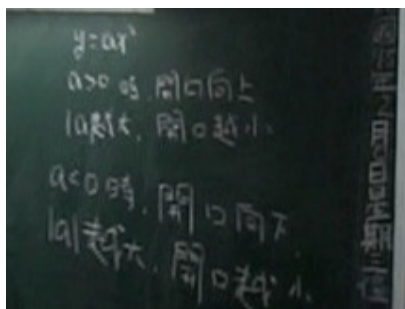 y=ax²
a>0時,開口向上
|a|越大,開口越小.
a<0時,開口向下
|a|越大,開口越小.